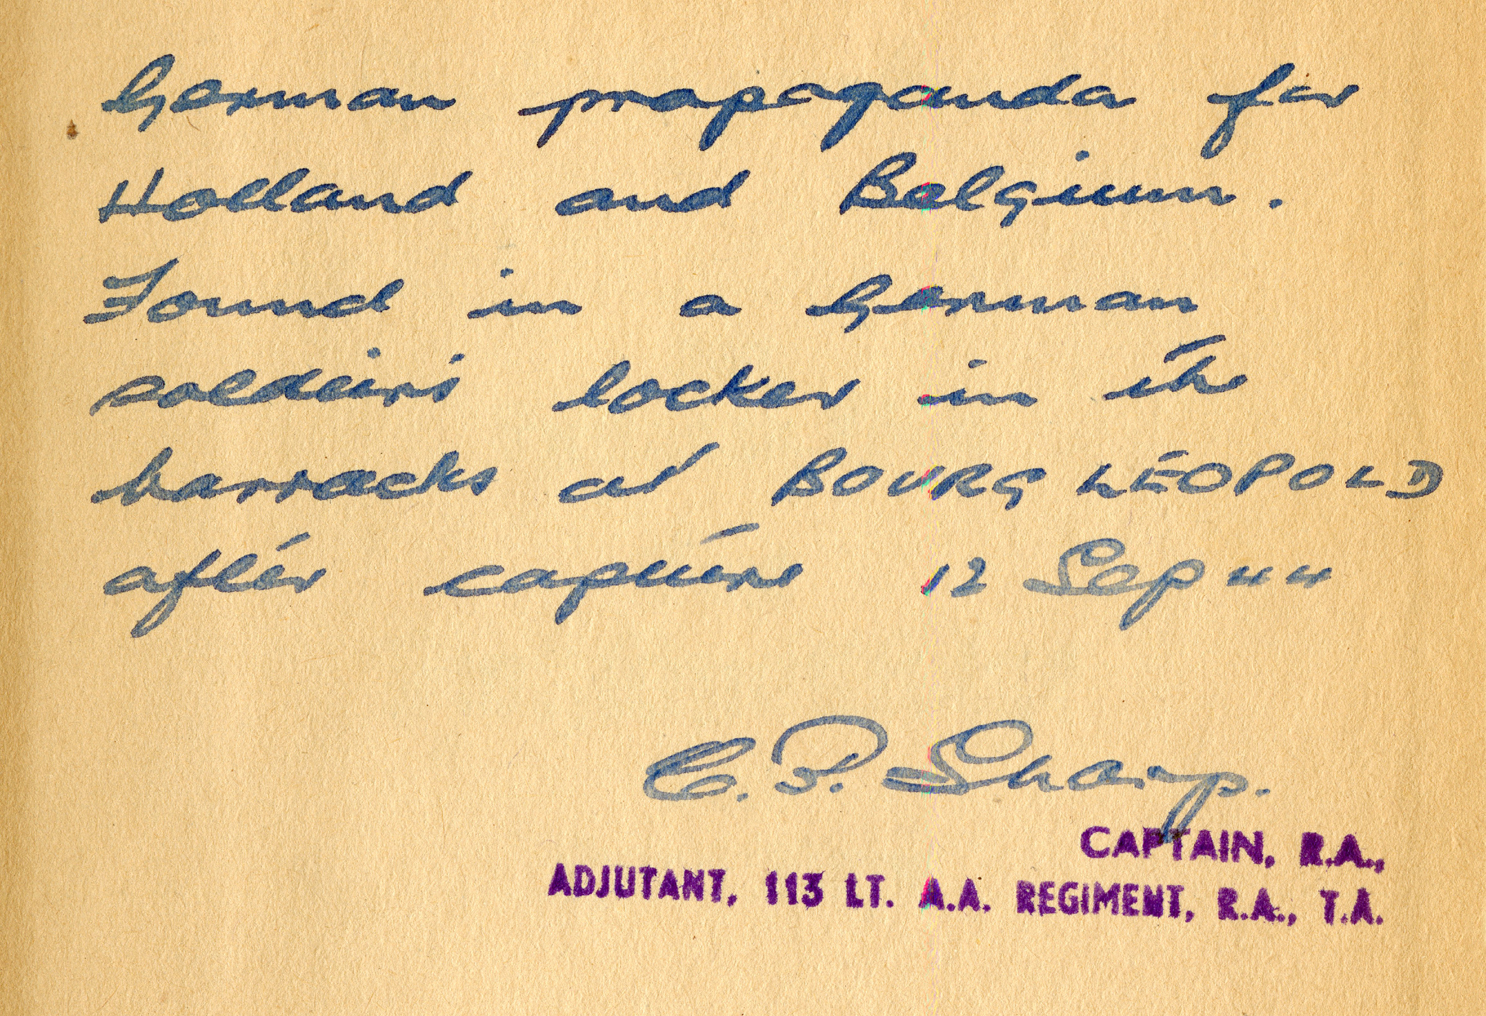 German propaganda for
Holland and Belgium.
Found in a German
soldier's locker in the
barracks at BOURG LÉOPOLD
after capture 12 Sep 44
C. P. Sharp.
CAPTAIN, R.A.,
ADJUTANT, 113 LT. A.A. REGIMENT, R.A., T.A.